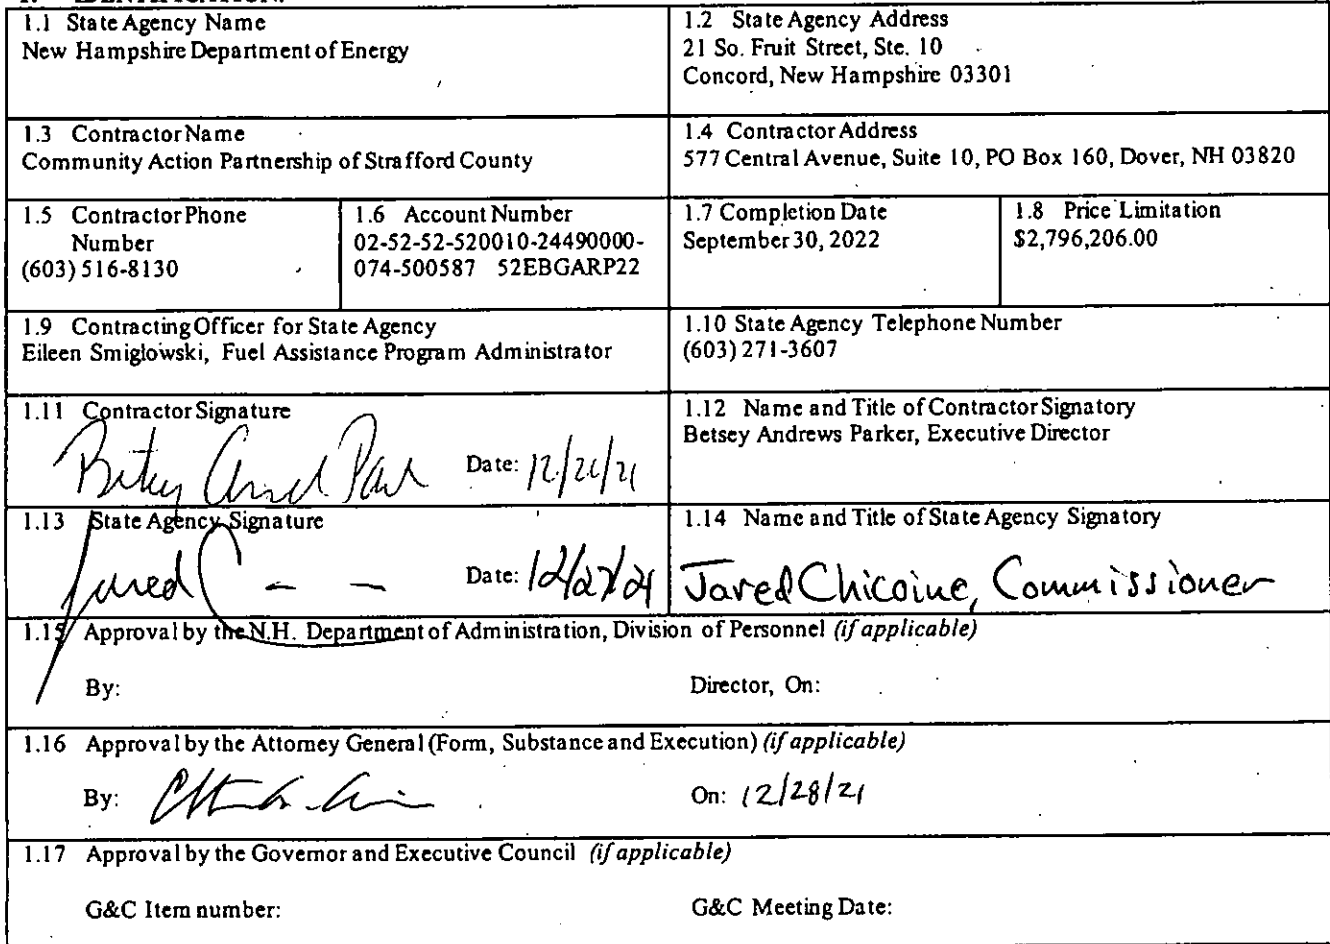 1.1 State Agency Name
New Hampshire Department of Energy
1.2 State Agency Address
21 So. Fruit Street, Ste. 10
Concord, New Hampshire 03301
1.3 Contractor Name
Community Action Partnership of Strafford County
1.4 Contractor Address
577 Central Avenue, Suite 10, PO Box 160, Dover, NH 03820
1.5 Contractor Phone
Number
(603) 516-8130
1.6 Account Number
02-52-52-520010-24490000-
074-500587 52EBGARP22
1.7 Completion Date
September 30, 2022
1.8 Price Limitation
$2,796,206.00
1.9 Contracting Officer for State Agency
Eileen Smiglowski, Fuel Assistance Program Administrator
1.10 State Agency Telephone Number
(603) 271-3607
1.11 Contractor Signature
Date: 12/21/21
1.12 Name and Title of Contractor Signatory
Betsey Andrews Parker, Executive Director
1.13 State Agency Signature
Jared C
Date: 12/27/21
1.14 Name and Title of State Agency Signatory
Jared Chicoine, Commissioner
1.15 Approval by the N.H. Department of Administration, Division of Personnel (if applicable)
By:
Director, On:
1.16 Approval by the Attorney General (Form, Substance and Execution) (if applicable)
By:
On: 12/28/21
1.17 Approval by the Governor and Executive Council (if applicable)
G&C Item number:
G&C Meeting Date: